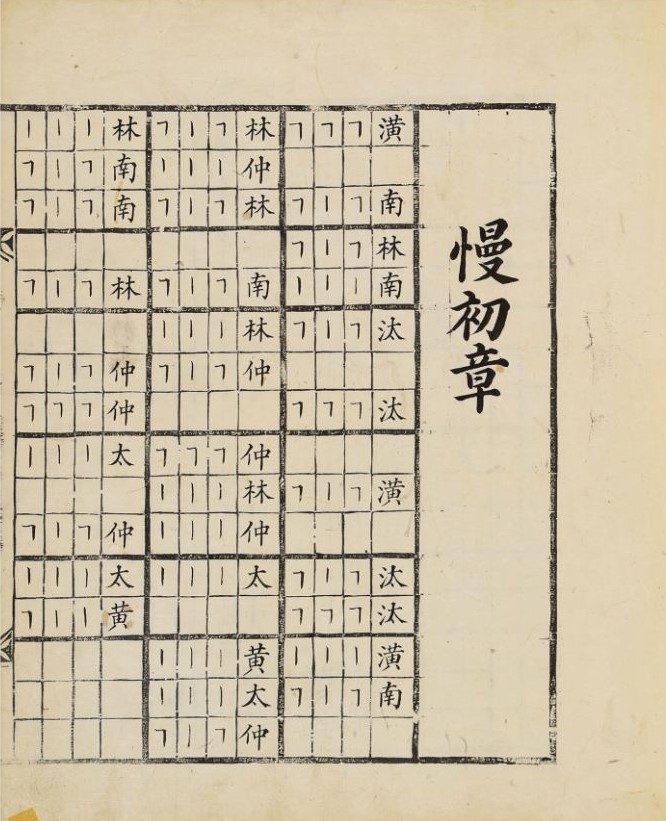 慢初章
潢南林南汰汰潢汰汰潢南
林仲林南林仲仲林仲太黄太仲
林南南林仲仲太仲太黄